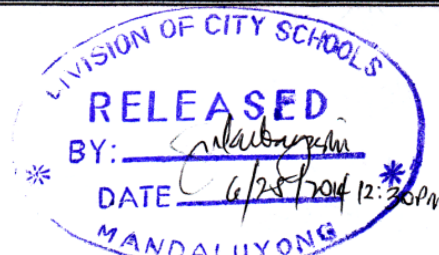 DIVISION OF CITY SCHOOLS
RELEASED
BY:
DATE 6/28/2014 12:30PM
MANDALUYONG